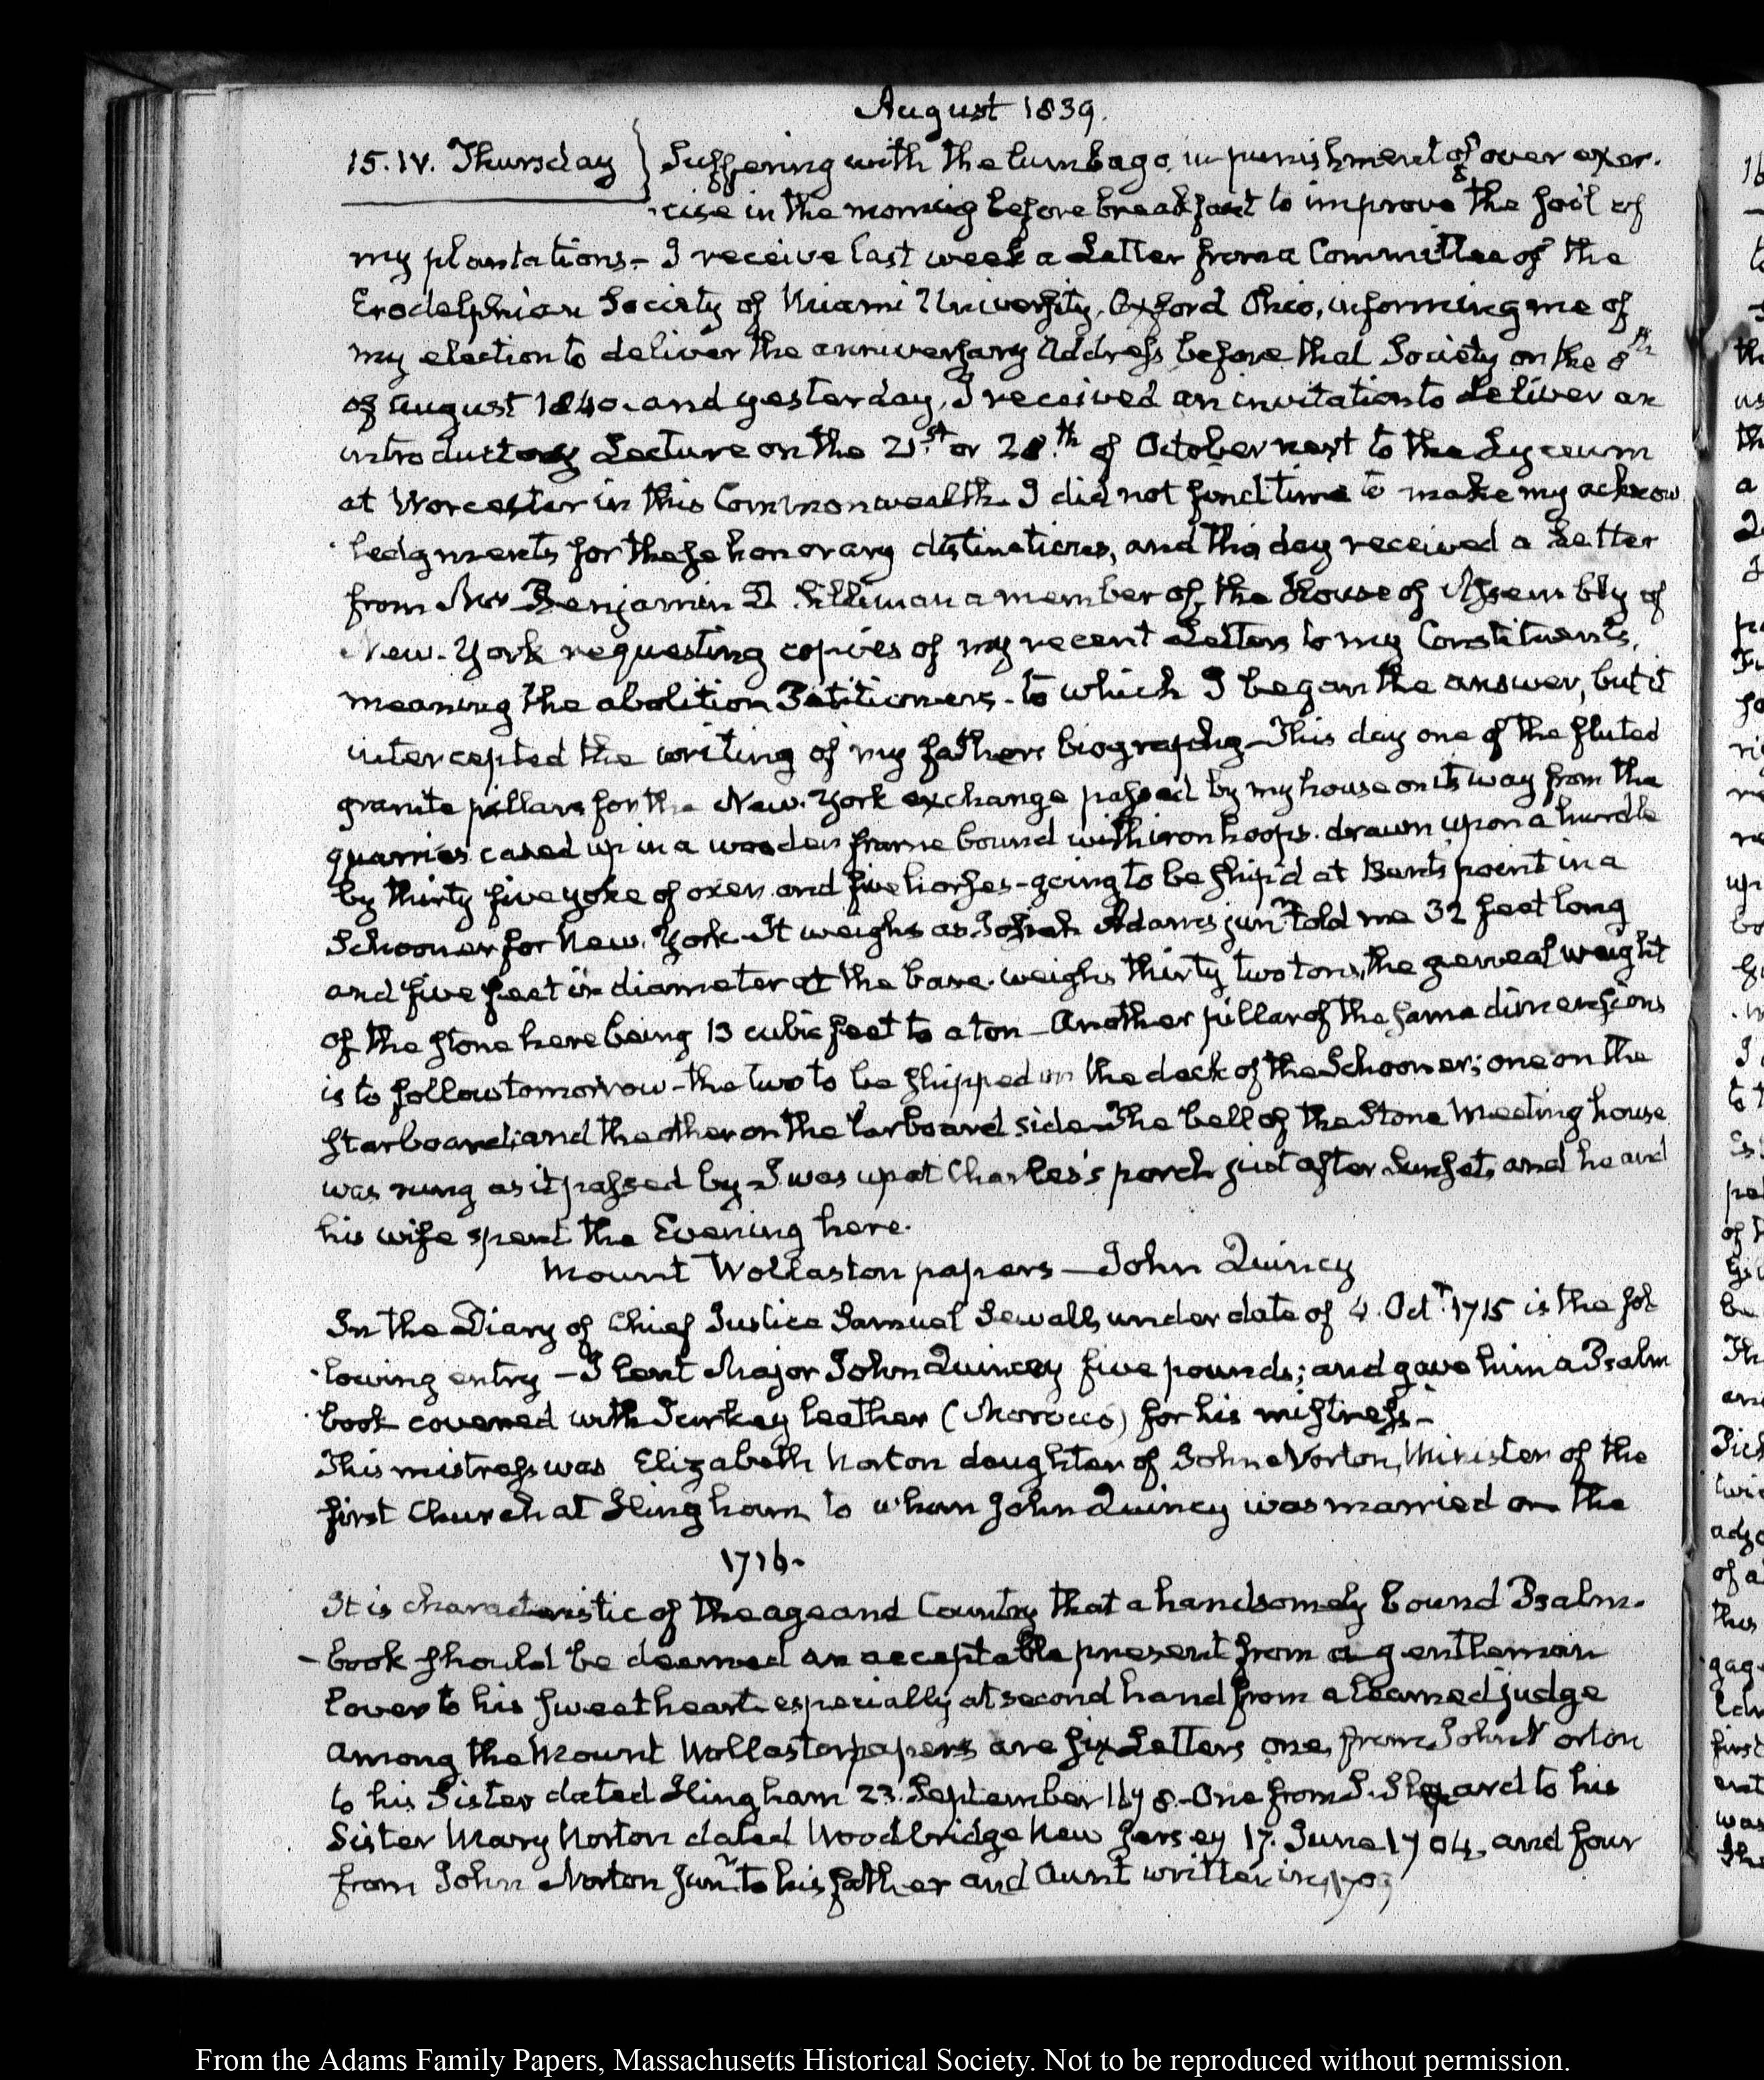 August 1839.
15. IV. Thursday } Suffering with the lumbago, in punishment of over exer-
-cise in the morning before breakfast to improve the soil of
my plantations— I receive last week a Letter from a Committee of the
Erodelphian Society of Miami University, Oxford Ohio, informing me of
my election to deliver the anniversary Address before that Society on the 8th
of August 1840. and yesterday, I received an invitation to deliver an
introductory Lecture on the 21st or 28th of October next to the Lyceum
at Worcester in this Commonwealth. I did not find time to make my acknow
-ledgments for these honorary distinctions, and this day received a Letter
from Mr Benjamin D. Silliman a member of the House of Assembly of
New-York requesting copies of my recent Letters to my Constituents,
meaning the abolition Petitioners- to which I began the answer, but it
intercepted the writing of my fathers biography— This day one of the fluted
granite pillars for the New-York exchange passed by my house on its way from the
quarries cased up in a wooden frame bound with iron hoops. drawn upon a hurdle
by thirty five yoke of oxen and five horses- going to be ship'd at Bents point in a
Schooner for New-York. It weighs as Josiah Adams junr told me 32 feet long
and five feet in diameter at the base. weighs thirty two tons, the general weight
of the stone here being 13 cubic feet to a ton— Another pillar of the same dimensions
is to follow tomorrow- the two to be shipped on the deck of the Schooner; one on the
starboard; and the other on the larboard side— The bell of the Stone Meeting house
was rung as it passed by— I was up at Charles's porch just after Sunset, and he and
his wife spent the Evening here.
Mount Wollaston papers— John Quincy
In the Diary of Chief Justice Samuel Sewall, under date of 4. Octr 1715 is the fol
-lowing entry — I lent Major John Quincey five pounds; and gave him a Psalm
book covered with Turkey leather (Morocco) for his mistress.—
This mistress was Elizabeth Norton daughter of John Norton, Minister of the
first Church at Hingham to whom John Quincy was married on the
1716.
It is characteristic of the age and Country that a handsomely bound Psalm-
-book should be deemed an acceptable present from a gentleman
lover to his sweetheart especially at second hand from a learned judge
Among the Mount Wollaston papers are six Letters one, from John Norton
to his Sister dated Hingham 23. September 1678.- One from S. Shepard to his
Sister Mary Norton dated Woodbridge New Jersey 17. June 1704, and four
from John Norton junr to his father and Aunt written in
16
From the Adams Family Papers, Massachusetts Historical Society. Not to be reproduced without permission.